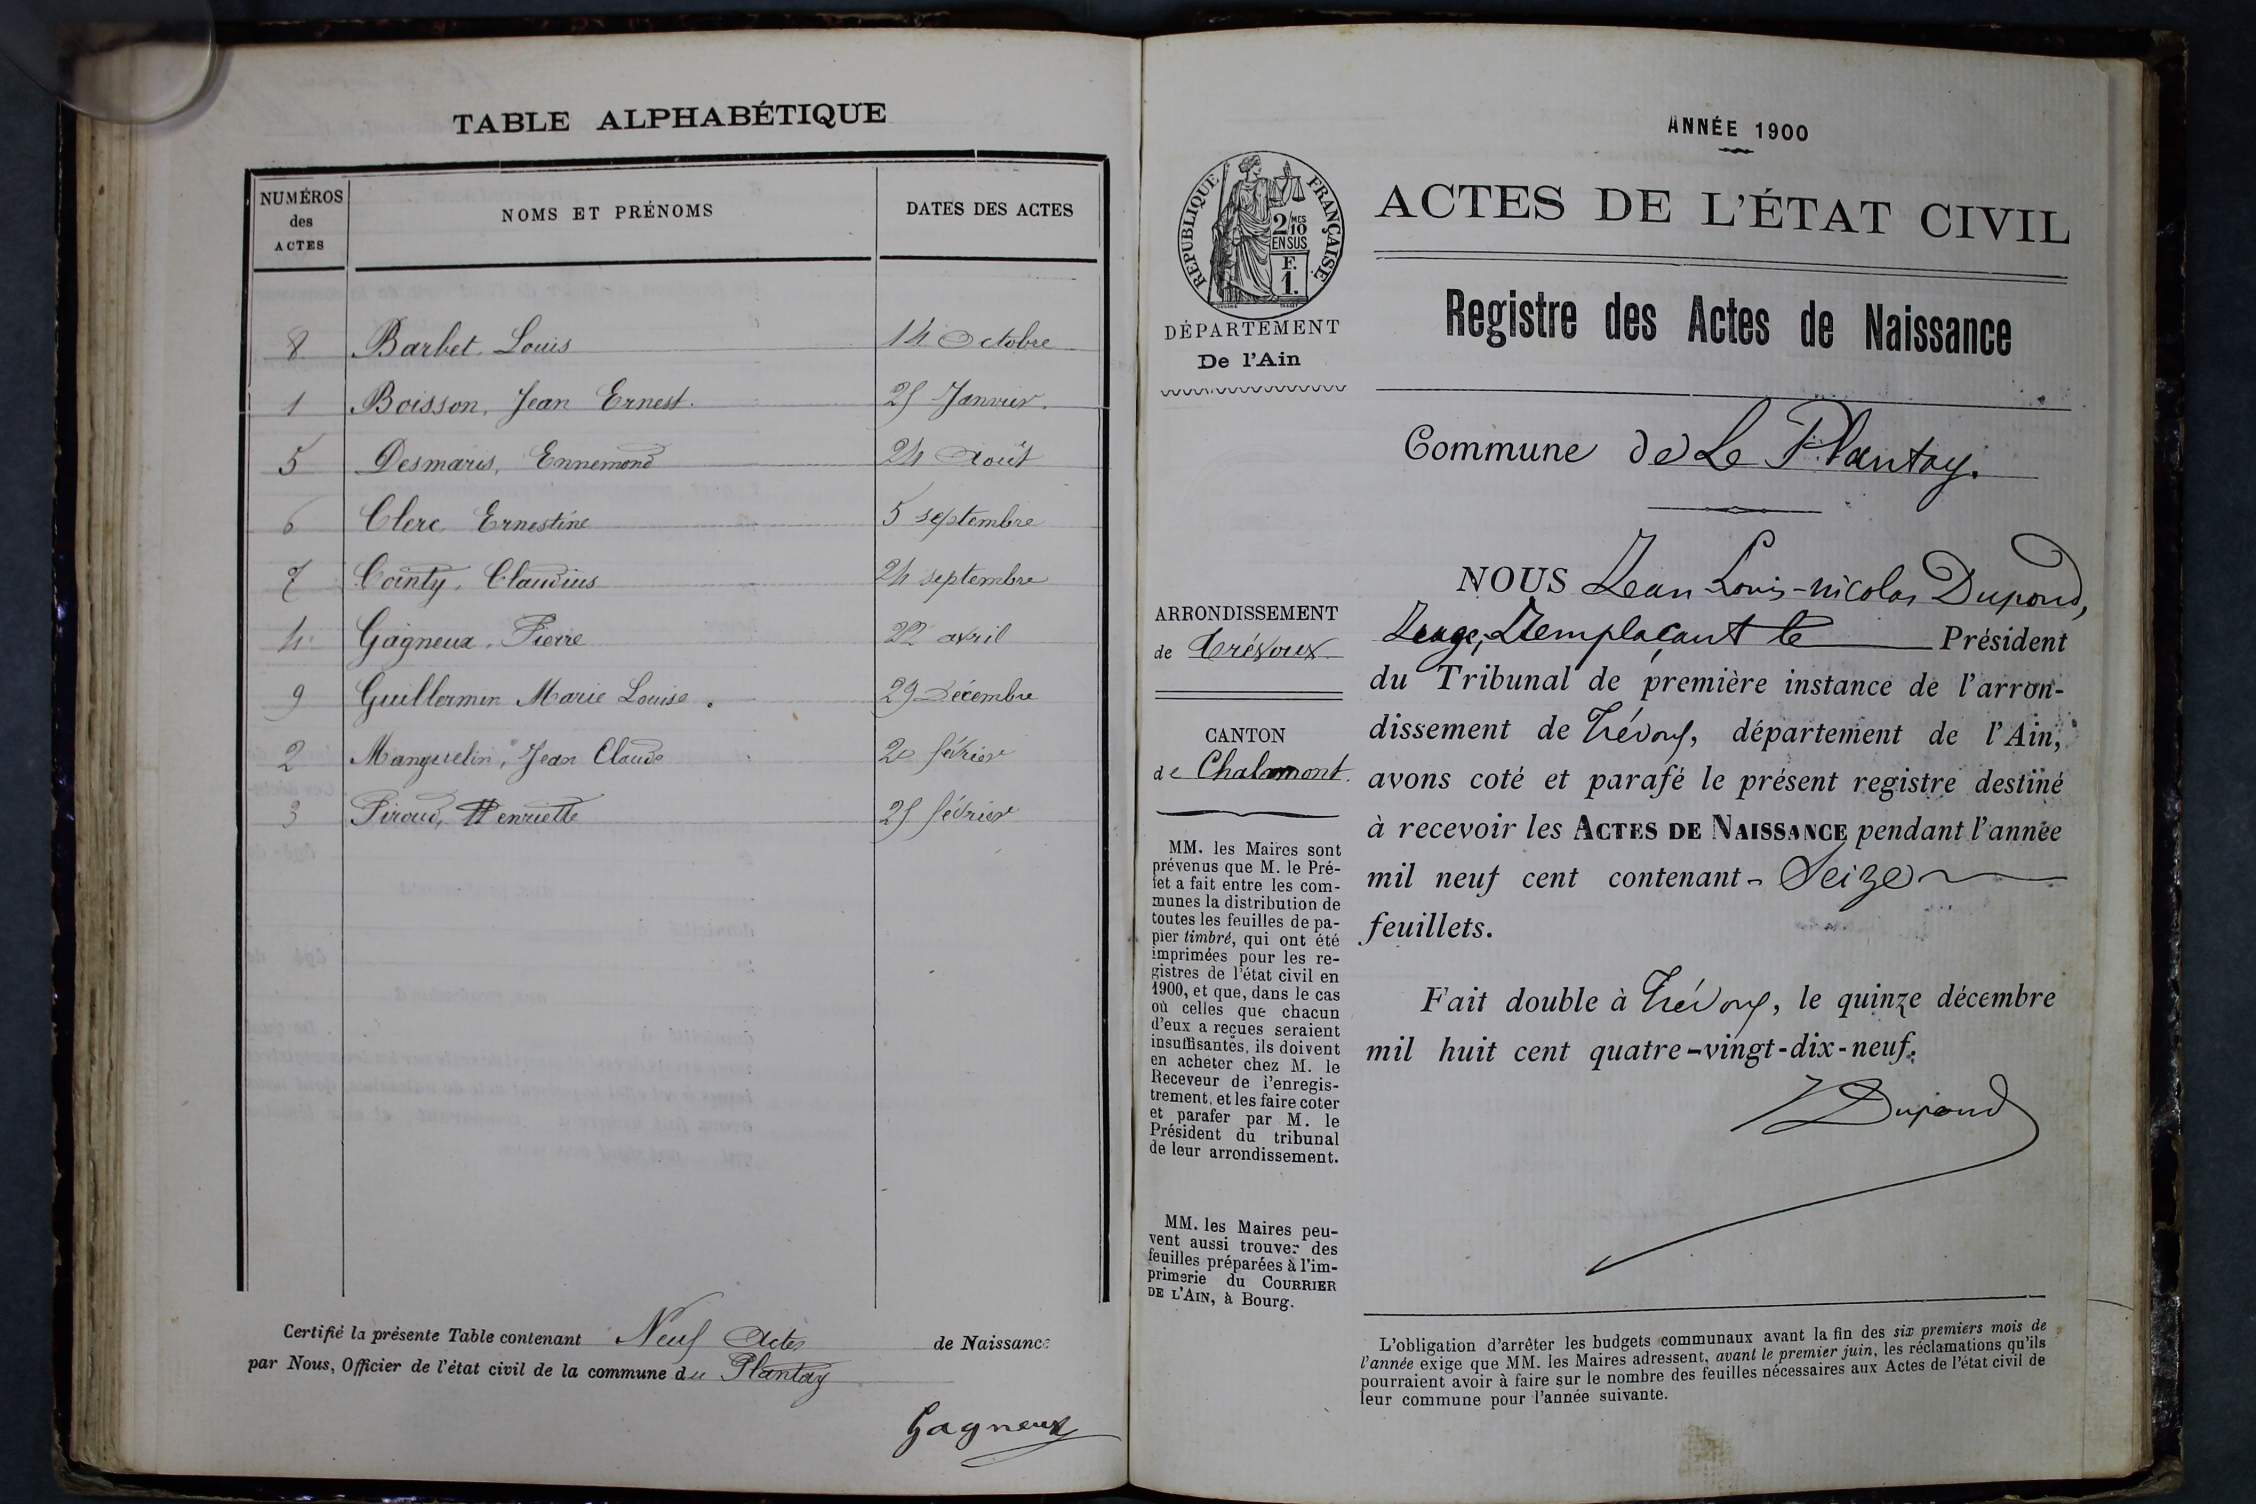 TABLE ALPHABÉTIQUE
NUMÉROS des ACTES
NOMS ET PRÉNOMS
DATES DES ACTES
8 Barbet, Louis 14 Octobre
1 Boisson, Jean Ernest. 25 Janvier.
5 Desmaris, Ennemond 24 Août
6 Clerc, Ernestine 5 septembre
7 Cointy, Claudius 24 septembre
4 Gagneux, Pierre 22 avril
9 Guillermin Marie Louise. 29 Décembre
2 Manguelin, Jean Claude 20 février
3 Piroud, Henriette 25 février
Certifié la présente Table contenant Neuf Actes de Naissance
par Nous, Officier de l'état civil de la commune du Plantay
Gagneux
ANNÉE 1900
RÉPUBLIQUE FRANÇAISE
2/10 MES
EN SUS
F.
1.
DÉPARTEMENT
De l'Ain
ARRONDISSEMENT
de Trévoux
CANTON
de Chalamont.
MM. les Maires sont
prévenus que M. le Pré-
fet a fait entre les com-
munes la distribution de
toutes les feuilles de pa-
pier timbré, qui ont été
imprimées pour les re-
gistres de l'état civil en
1900, et que, dans le cas
où celles que chacun
d'eux a reçues seraient
insuffisantes, ils doivent
en acheter chez M. le
Receveur de l'enregis-
trement, et les faire coter
et parafer par M. le
Président du tribunal
de leur arrondissement.
MM. les Maires peu-
vent aussi trouver des
feuilles préparées à l'im-
primerie du COURRIER
DE L'AIN, à Bourg.
ACTES DE L'ÉTAT CIVIL
Registre des Actes de Naissance
Commune de Le Plantay.
NOUS Jean Louis-Nicolas Dupond,
Juge, Remplaçant le Président
du Tribunal de première instance de l'arron-
dissement de Trévoux, département de l'Ain,
avons coté et parafé le présent registre destiné
à recevoir les ACTES DE NAISSANCE pendant l'année
mil neuf cent contenant - Seize
feuillets.
Fait double à Trévoux, le quinze décembre
mil huit cent quatre-vingt-dix-neuf.
Dupond
L'obligation d'arrêter les budgets communaux avant la fin des six premiers mois de
l'année exige que MM. les Maires adressent, avant le premier juin, les réclamations qu'ils
pourraient avoir à faire sur le nombre des feuilles nécessaires aux Actes de l'état civil de
leur commune pour l'année suivante.